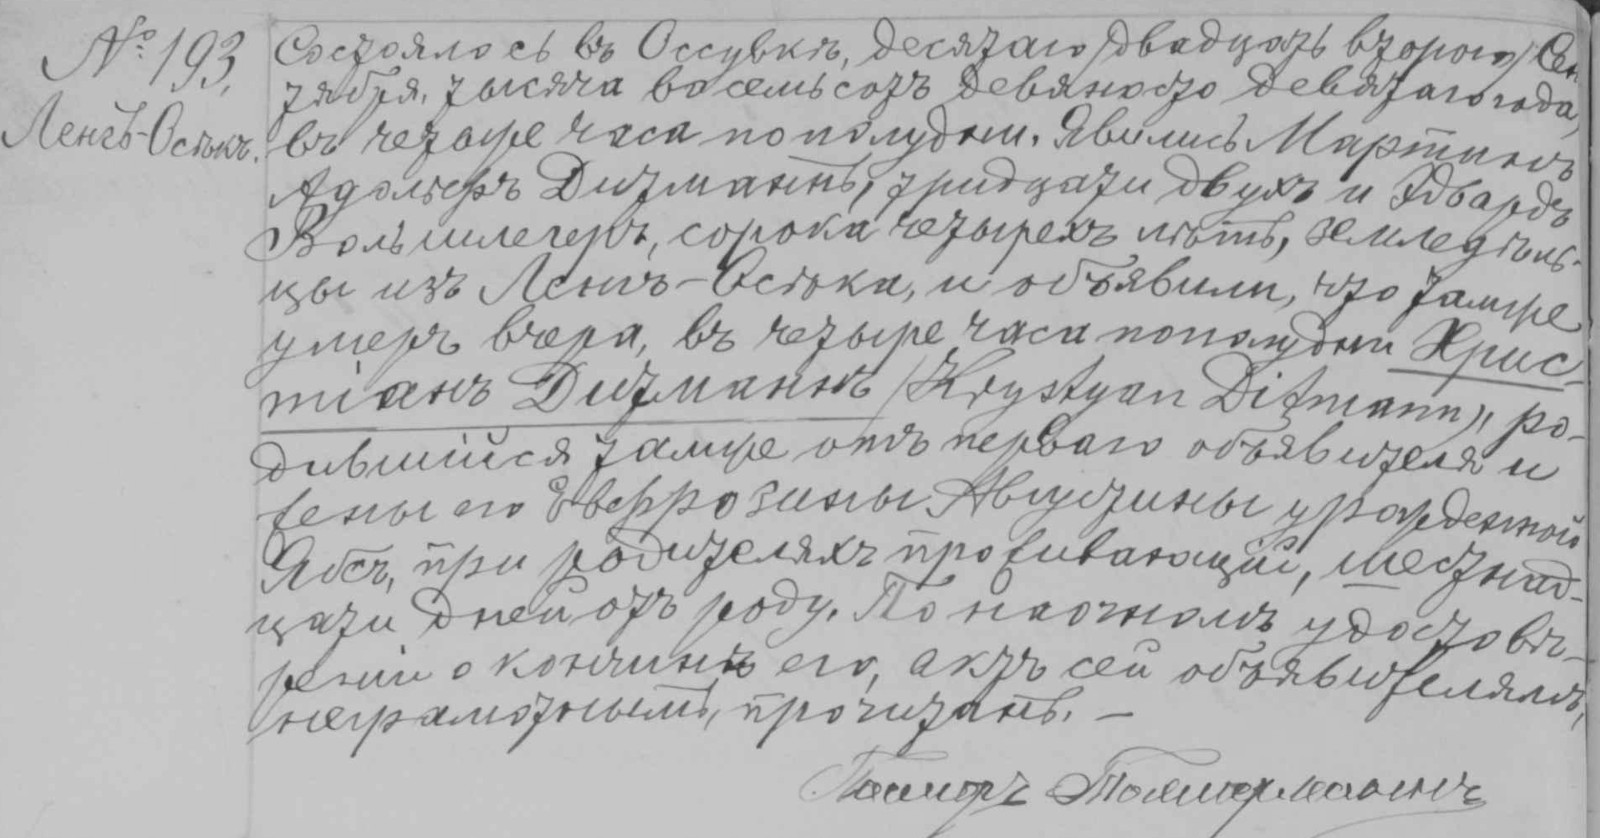 № 193.
Ленгъ-Остъкъ.
Состоялось въ Оссувкѣ, десятаго /двадцать втораго/ Сен-
тября, тысяча восемьсотъ девяносто девятаго года,
въ четыре часа пополудни. Явились Мартинъ
Адольфъ Дитманнъ, тридцати двухъ и Эдвардъ
Вольшлегеръ, сорока четырехъ лѣтъ, земледѣль-
цы изъ Ленгъ-Остъка, и объявили, что тамже
умеръ вчера, въ четыре часа пополудни Хрис-
тіанъ Дитманнъ /Krystyan Ditmann/, ро-
дившійся тамже отъ перваго объявителя и
жены его Ефрозины Августины урожденной
Ябсъ, при родителяхъ проживающій, шестнад-
цати дней отъ роду. По наочномъ удостовѣ-
реніи о кончинѣ его, актъ сей объявителямъ,
неграмотнымъ, прочитанъ. —
Пасторъ